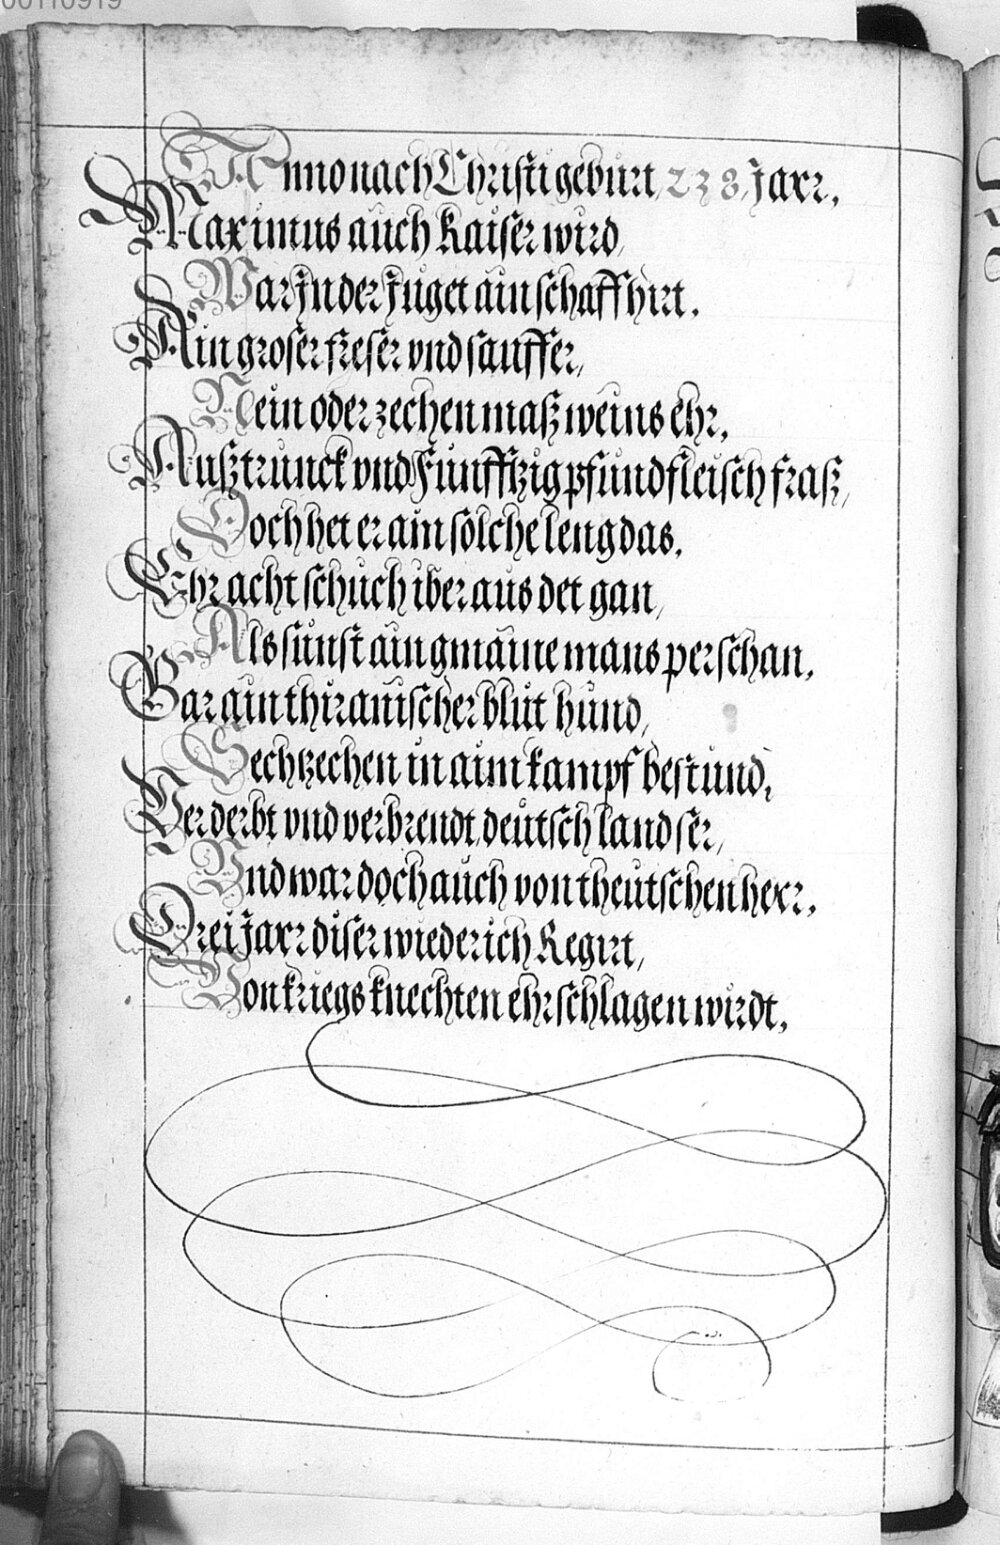 00110919
Anno nach Christi geburt 238 Jarr,
Maximus auch Kaiser wird,
War In der Iuget ain schaffhirt,
Ain groser freser vnd sauffer,
Nein oder zechen maß weins ehr,
Außtrunck vnd Funfftzig pfund fleisch fraß,
Doch het er ain solche leng das,
Ehr acht schuch iber aus det gan,
Als sunst ain gmaine mans perschan,
Gar ain thiranischer blut hund,
Sechtzechen in aim kampf bestund,
Verderbt vnd verbrendt deutschland ser,
Vnd war doch auch von theutschen herr,
Drei Jarr diser wiederich Regirt,
Von kriegs knechten ehrschlagen wirdt,